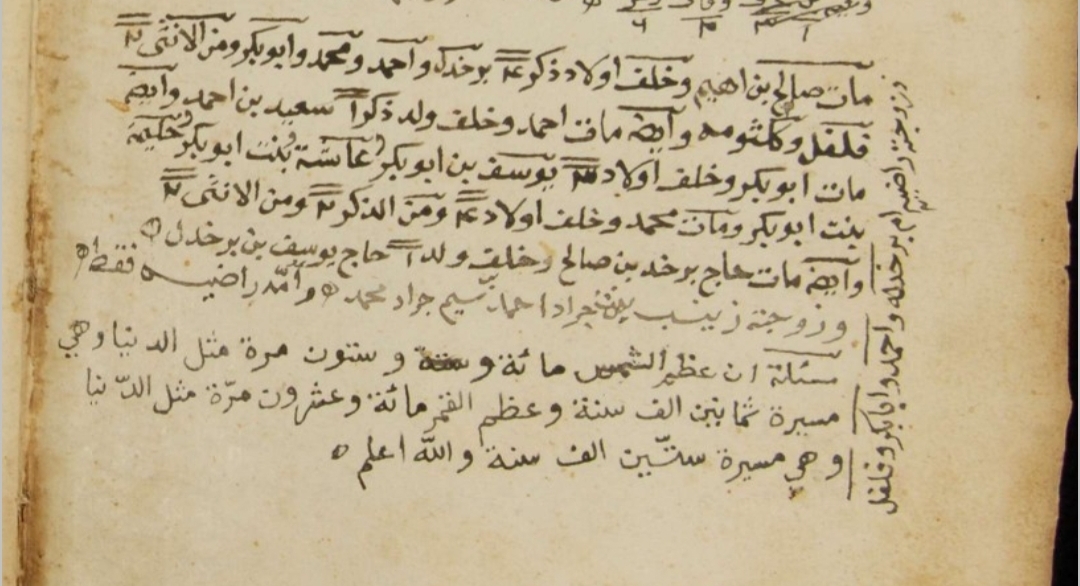 مات صالح بن اهيم وخلف اولاد ذكر ٤ برخدله واحمد ومحمد وابوبكر ومن الانثى ٢
فلفل وكلثومه وايضه مات احمد وخلف ولد ذكر ١ سعيد بن احمد وايضه
مات ابوبكر وخلف اولاد ٣ يوسف بن ابوبكر عائشة بنت ابوبكر حكيمة
بنت ابوبكر ومات محمد وخلف اولاد ٤ ومن الذكر ٢ ومن الانثى ٢
وايضه مات حاج برخد بن صالح وخلف ولد ١ حاج يوسف بن برخدل
وزوجته زينب جراد احمد جراد محمد وامّه راضيه فقط
مسئلة ان عظم الشمس مائة و وستون مرة مثل الدنيا وهي
مسيرة ثمانين الف سنة وعظم القمر مائة وعشرون مرّة مثل الدّنيا
وهي مسيرة ستّين الف سنة واللّه اعلم
وزوجته راضيه ام برخدله واحمد وابابكر وفلفل